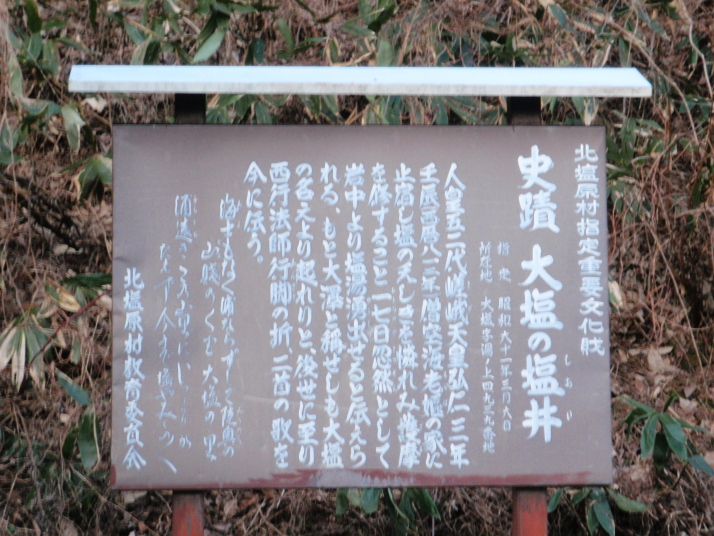 北塩原村指定重要文化財
史蹟 大塩の塩井
しおい
指定 昭和六十一年三月六日
所在地 大塩字調上四九三九番地
人皇五二代嵯峨天皇弘仁三年
壬辰西暦八一二年僧空海老媼の家に
止宿し塩の乏しきを憐れみ護摩
を修すること二一七日忽然として
岩中より塩湯湧出せると伝えら
れる、もと大澤と称せしも大塩
の名えより起れりと、後世に至り
西行法師行脚の折二首の歌を
今に伝う。
海士もなく浦ならずして陸奥の
山賤のくむ大塩の里
北塩原村教育委員会